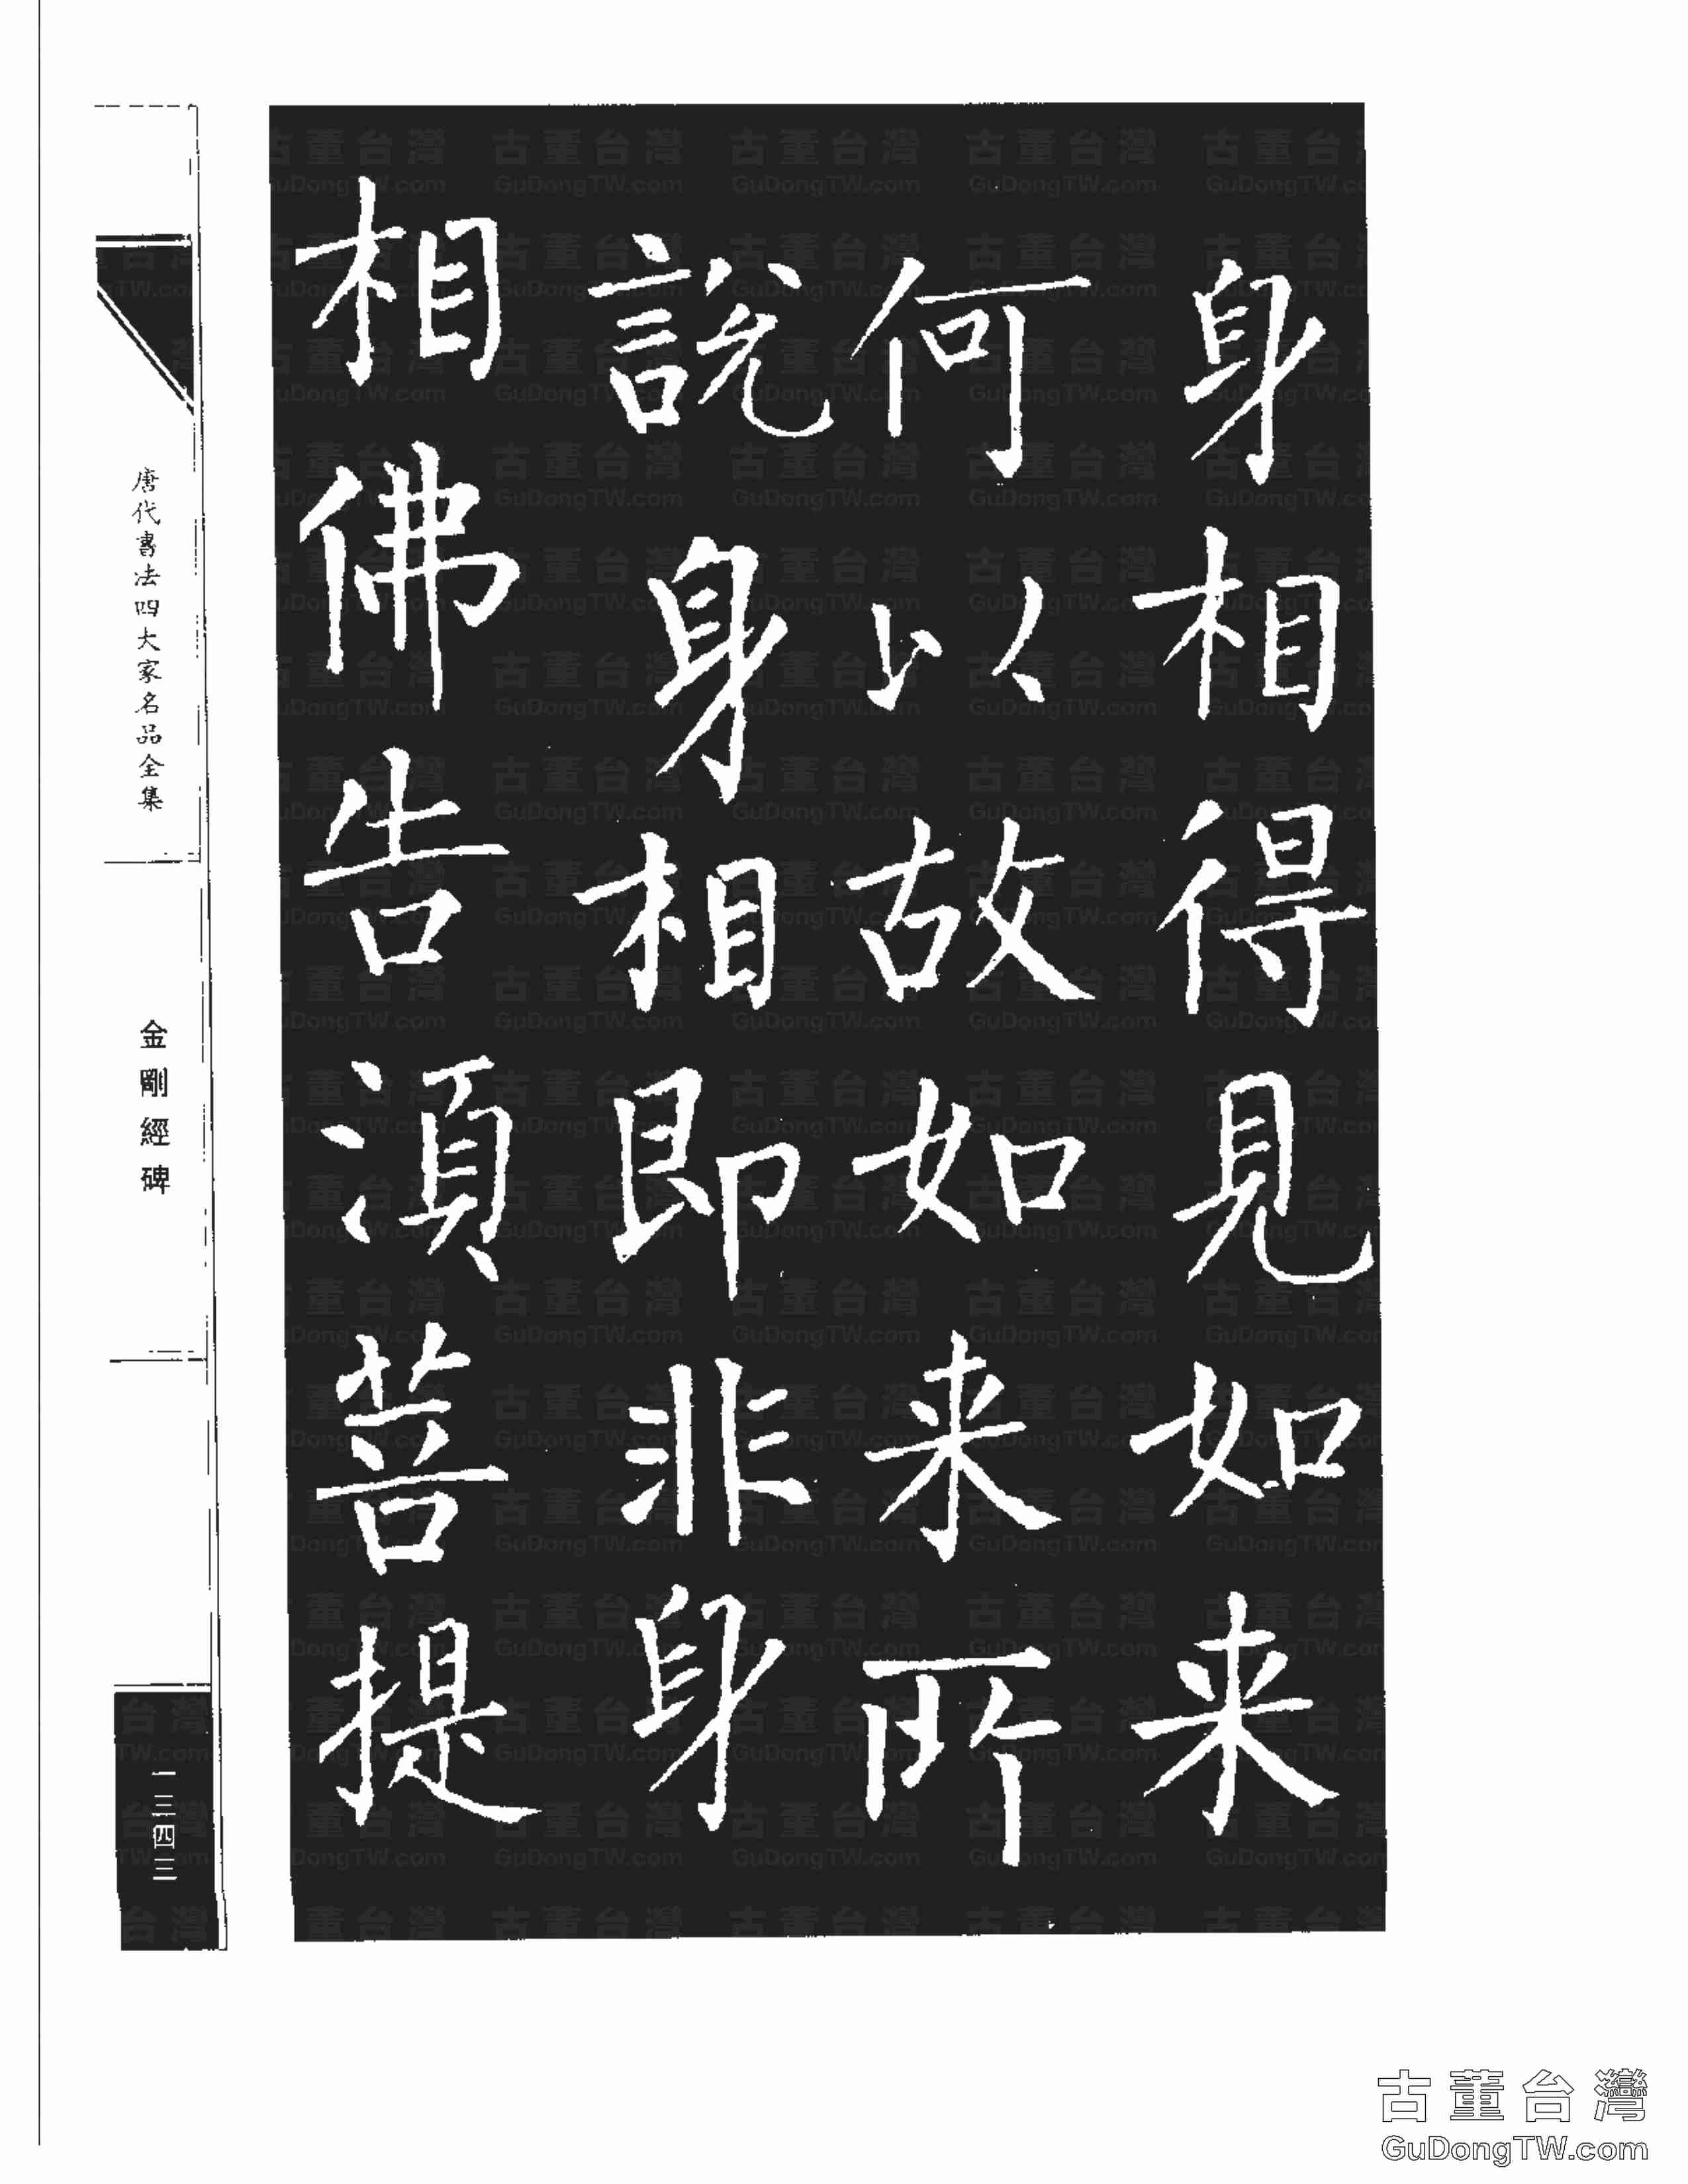 身相得見如来
何以故如来所
說身相即非身
相佛告湏菩提
唐代書法四大家名品全集
金剛經碑
一三四三
古董台灣
GuDongTW.com